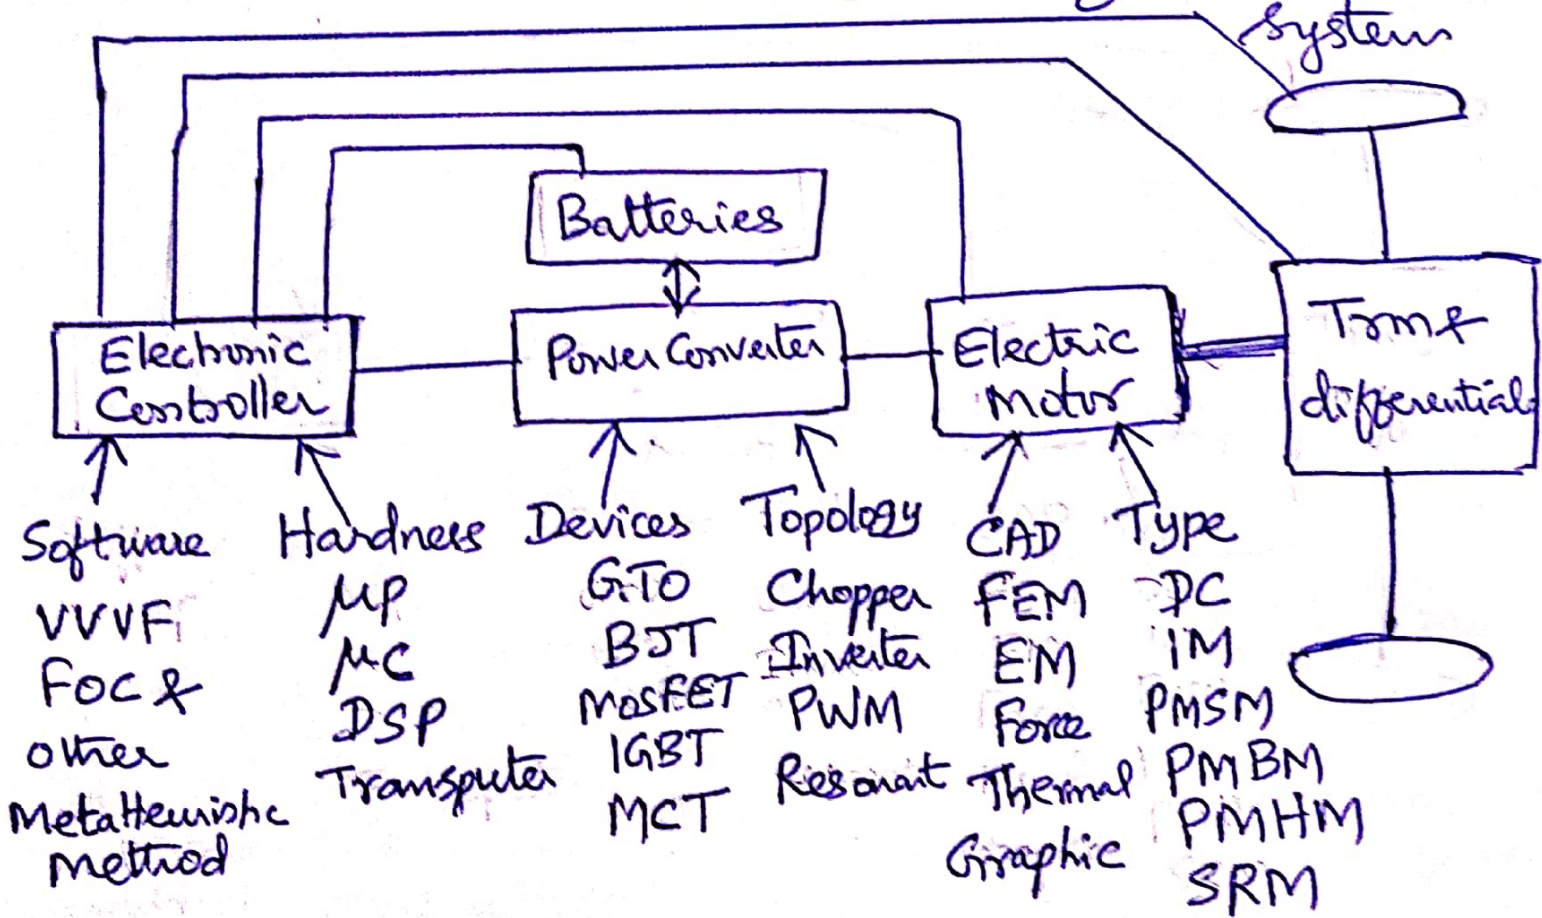 System
Batteries
Electronic
Controller
Power Converter
Electric
Motor
Trm &
differential
Software
VVVF
FOC &
other
Metatteuristic
Method
Hardness
μP
μC
DSP
Transputer
Devices
GTO
BJT
MOSFET
IGBT
MCT
Topology
Chopper
Inverter
PWM
Resonant
CAD
FEM
EM
Force
Thermal
Graphic
Type
DC
IM
PMSM
PMBM
PMHM
SRM